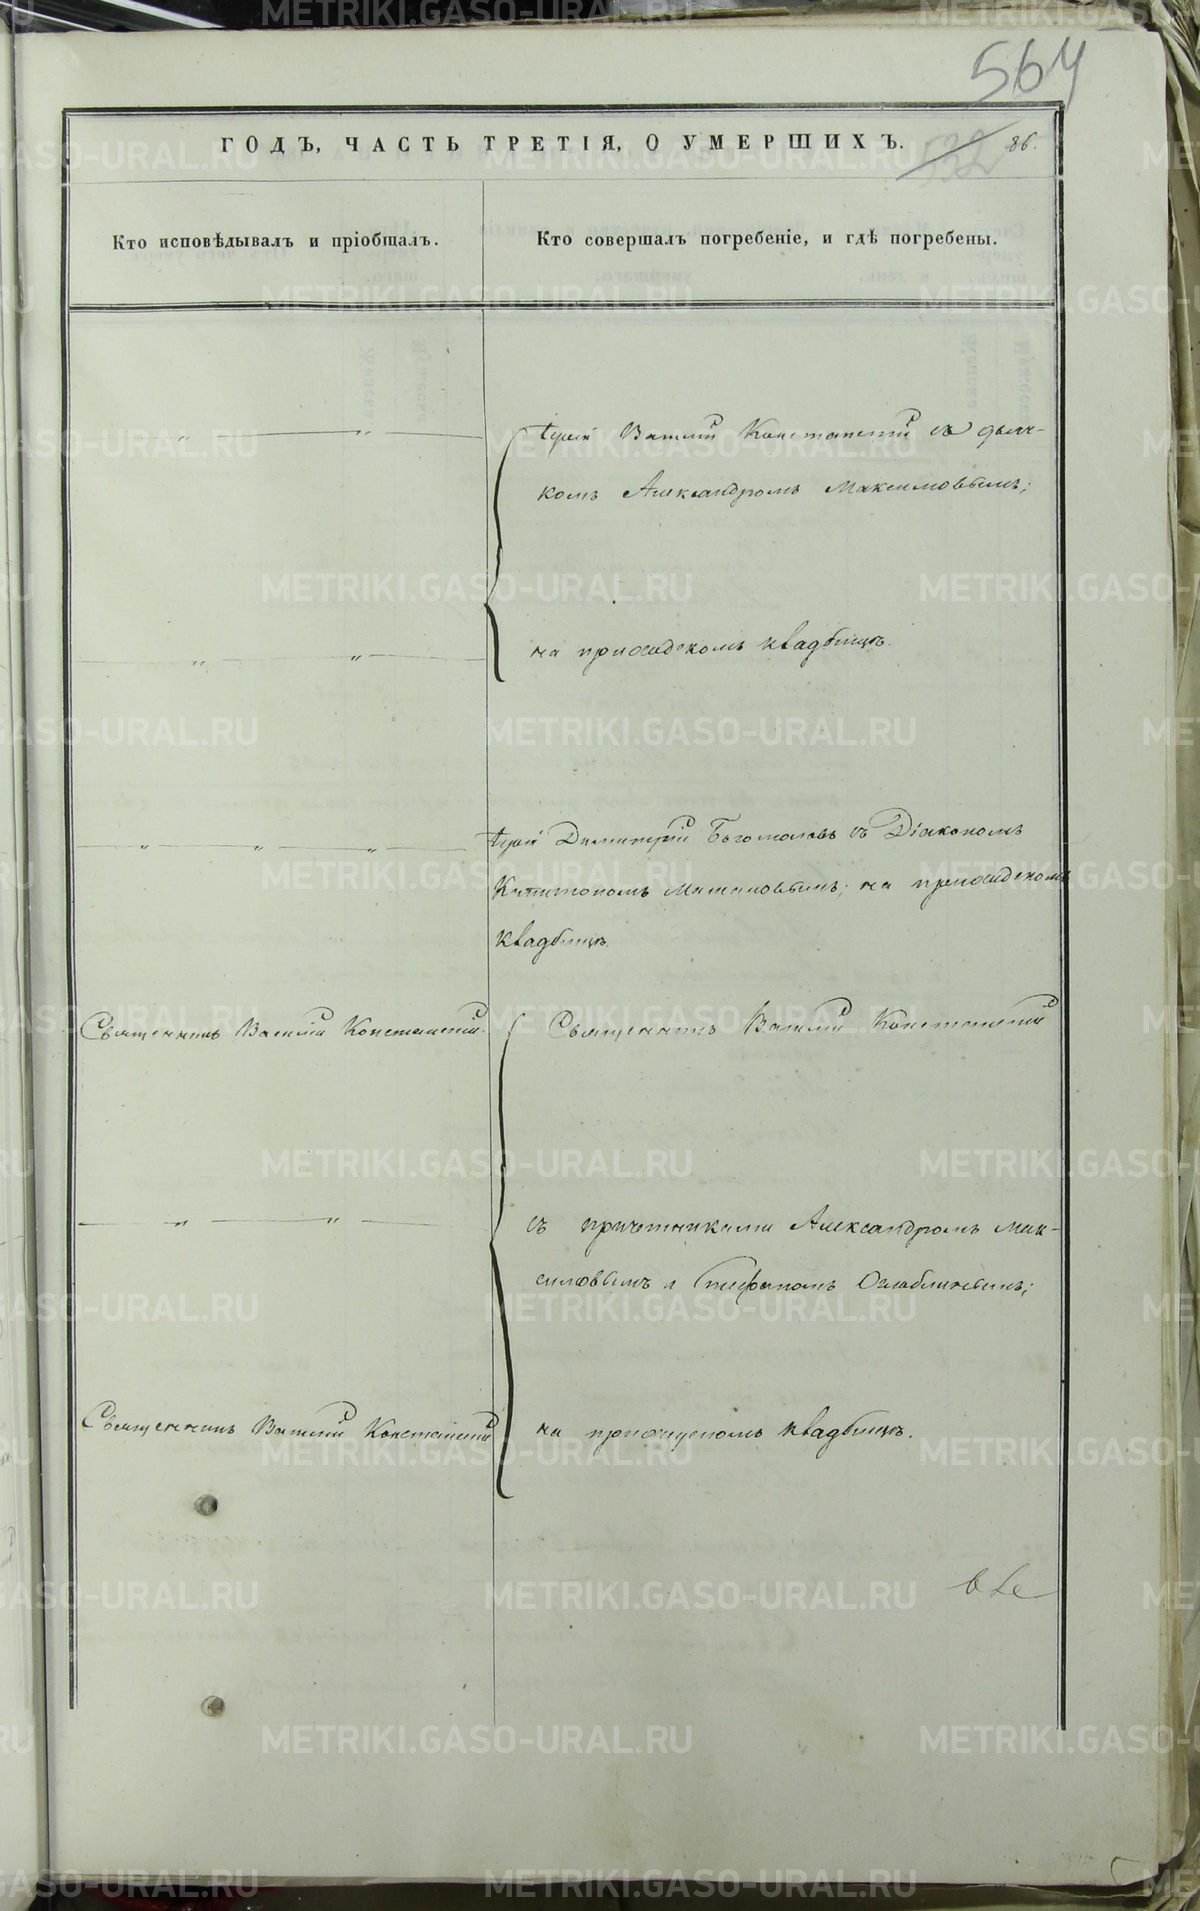 564
ГОДЪ, ЧАСТЬ ТРЕТІЯ, О УМЕРШИХЪ.
532 86.
Кто исповѣдывалъ и пріобщалъ.
Кто совершалъ погребеніе, и гдѣ погребены.
Іерей Василій Констанскій съ дьяч-
комъ Александромъ Максимовымъ;
на приходскомъ кладбищѣ.
Іерей Димитрій Богомоловъ съ Діакономъ
Капитономъ на приходскомъ
кладбищѣ.
Священникъ Василій Констанскій.
Священникъ Василій Констанскій
съ причетниками Александромъ Мак-
симовымъ и Стефаномъ Оглоблинымъ;
Священникъ Василій Констанскій
на приходскомъ кладбищѣ.
METRIKI.GASO-URAL.RU